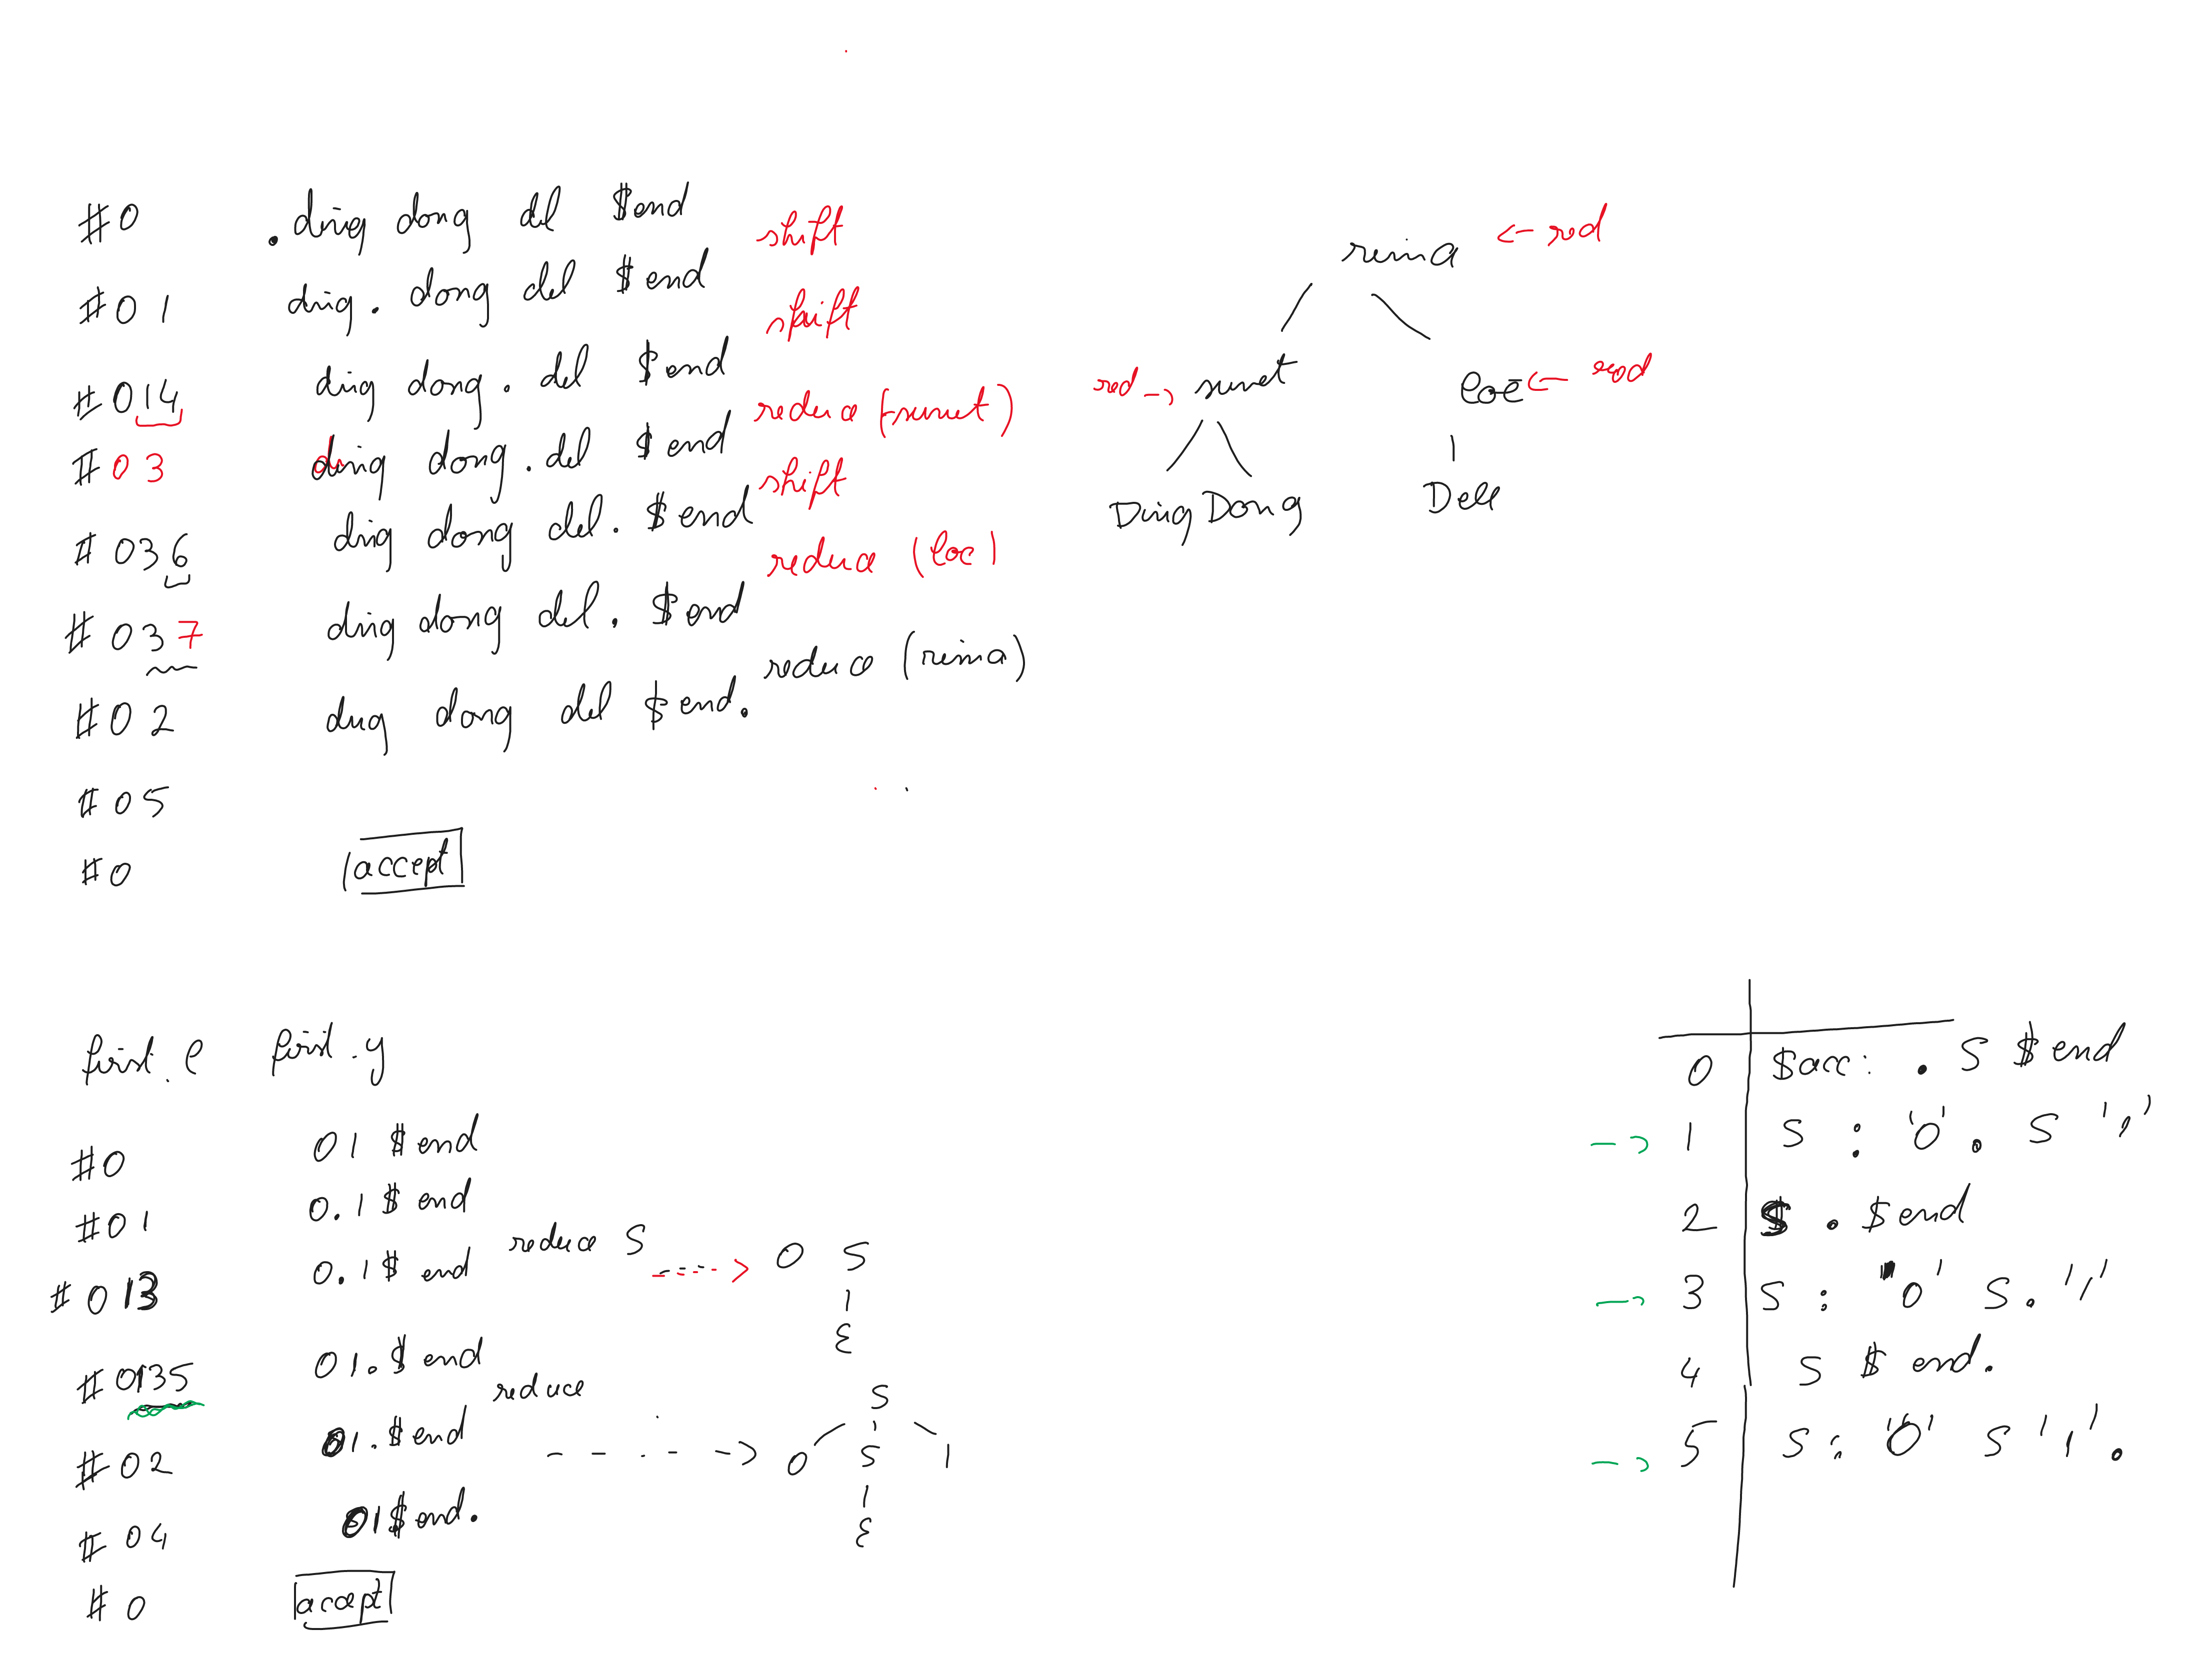 #0 .ding dong del $end
shift
#01 ding. dong del $end
shift
#014 ding dong. del $end
reduce (sunet)
#03 ding dong. del $end
shift
#036 ding dong del. $end
reduce (loc)
#037 ding dong del. $end
reduce (rima)
#02 ding dong del $end.
#05
#0 accept
rima <- red
red -> sunet
loc <- red
Ding Dong
Dell
first.l first.y
#0 01 $end
#01 0.1 $end
reduce S
#013 0.1 $end
----> 0 S
ε
#0135 01.$end
reduce
#02 01.$end
----> S
0 S 1
ε
#04 01$end.
#0 accept
0 $acc: . S $end
-> 1 S : '0'. S '1'
2 S . $end
-> 3 S : '0' S. '1'
4 S $end.
-> 5 S : '0' S '1'.